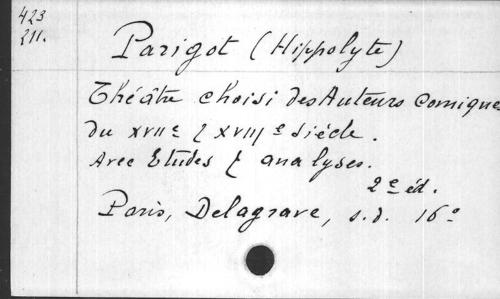 423
211.
Parigot (Hippolyte)
Théâtre choisi des Auteurs Comique
du XVIIe & XVIIIe siècle.
Avec Etudes & analyses.
2e éd.
Paris, Delagrave, s.d. 16°